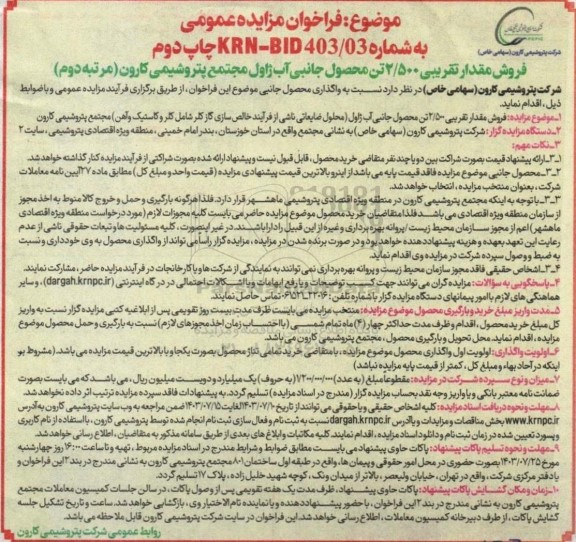 موضوع: فراخوان مزایده عمومی
به شماره KRN-BID 403/03 چاپ دوم
شرکت پتروشیمی کارون (سهامی خاص)
فروش مقدار تقریبی ۲/۵۰۰ تن محصول جانبی آب ژاول مجتمع پتروشیمی کارون (مرتبه دوم)
شرکت پتروشیمی کارون (سهامی خاص) در نظر دارد نسبت به واگذاری محصول جانبی موضوع این فراخوان، از طریق برگزاری فرآیند مزایده عمومی و با ضوابط
ذیل، اقدام نماید.
۱_موضوع مزایده: فروش مقدار تقریبی ۲/۵۰۰ تن محصول جانبی آب ژاول (محلول ضایعاتی ناشی از فرآیند خالص سازی گاز کلر شامل کلر و کاستیک و آهن) مجتمع پتروشیمی کارون
۲_دستگاه مزایده گزار: شرکت پتروشیمی کارون (سهامی خاص) به نشانی مجتمع واقع در استان خوزستان، بندر امام خمینی، منطقه ویژه اقتصادی پتروشیمی، سایت ۲
۳_نکات مهم:
۳_۱_ارائه پیشنهاد قیمت بصورت شراکت بین دو یا چند نفر متقاضی خرید محصول، قابل قبول نیست و پیشنهاد ارائه شده بصورت شراکتی از فرآیند مزایده کنار گذاشته خواهد شد.
۳_۲_محصول جانبی موضوع مزایده فاقد قیمت پایه می باشد از اینرو بالاترین قیمت پیشنهادی مزایده (قیمت واحد و مبلغ کل) مطابق ماده ۲۷ آیین نامه معاملات
شرکت، بعنوان منتخب مزایده، انتخاب خواهد شد.
۳_۳_با توجه به اینکه مجتمع پتروشیمی کارون در منطقه ویژه اقتصادی پتروشیمی ماهشهر قرار دارد. فلذا هرگونه بارگیری و حمل و خروج کالا منوط به اخذ مجوز
از سازمان منطقه ویژه اقتصادی می باشد فلذا متقاضیان خرید محصول موضوع مزایده حاضر می بایست کلیه مجوزات لازم (مورد درخواست منطقه ویژه اقتصادی
ماهشهر) اعم از مجوز سازمان محیط زیست / پروانه بهره برداری و غیره از این قبیل را دارا باشند. در غیر اینصورت، کلیه مسئولیت ها و تبعات حقوقی ناشی از عدم
رعایت این تعهد بعهده و هزینه پیشنهاد دهنده خواهد بود و در صورت برنده شدن در مزایده، مزایده گزار راسا می تواند از واگذاری محصول به وی خودداری و نسبت
به ضبط و وصول سپرده شرکت در مزایده وی اقدام نماید.
۳_۴_اشخاص حقیقی فاقد مجوز سازمان محیط زیست و پروانه بهره برداری نمی توانند به نمایندگی از شرکت ها و یا کارخانجات در فرآیند مزایده حاضر، مشارکت نمایند.
۴_پاسخگویی به سؤالات: مزایده گران می توانند جهت کسب توضیحات و یا رفع ابهامات و یا اشکالات احتمالی در درگاه اینترنتی (dargah.krnpc.ir)، و سایر
هماهنگی های لازم با امور پیمانهای دستگاه مزایده گزار با شماره تلفن: تماس حاصل نمایند.
۵_مدت واریز مبلغ خرید و بارگیری محصول موضوع مزایده: منتخب مزایده می بایست ظرف مدت بیست روز تقویمی پس از ابلاغیه کتبی مزایده گزار نسبت به واریز
کل مبلغ خرید محصول، اقدام و ظرف مدت حداکثر چهار (۴) ماه تمام شمسی (با احتساب زمان اخذ مجوزهای لازم) نسبت به بارگیری و حمل محصول موضوع
مزایده، اقدام نماید. محل تحویل و بارگیری محصول، مجتمع پتروشیمی کارون می باشد.
۶_اولویت واگذاری: اولویت اول واگذاری محصول موضوع مزایده، با متقاضی خرید تمامی تناژ محصول بصورت یکجا و با بالاترین قیمت مزایده می باشد (مشروط بر
اینکه در آحاد بها و مبلغ کل، کمتر از قیمت پایه مزایده نباشد)
۷_میزان و نوع سپرده شرکت در مزایده: مقطوعا مبلغ (به عدد) ۱/۲۰۰/۰۰۰/۰۰۰ (به حروف) یک میلیارد و دویست میلیون ریال، می باشد که می بایست بصورت
ضمانت نامه معتبر بانکی و یا واریز وجه نقد بحساب مزایده گزار (مندرج در اسناد مزایده) تسلیم گردد. به پیشنهادات فاقد سپرده مزایده ترتیب اثر داده نخواهد شد.
۸_مهلت و نحوه دریافت اسناد مزایده: کلیه اشخاص حقیقی و یا حقوقی می توانند از تاریخ ۱۴۰۳/۰۷/۱۰ لغایت ۱۴۰۳/۰۷/۱۵ ضمن مراجعه به وب سایت پتروشیمی کارون به آدرس
www.krnpc.ir بخش مناقصات و مزایدات و یا آدرس dargah.krnpc.ir نسبت به ثبت نام و فعال سازی ثبت نام انجام شده توسط پتروشیمی کارون، با استفاده از نام کاربری
و پسورد تعیین شده در زمان ثبت نام و دانلود اسناد مزایده، اقدام نمایند. کلیه مکاتبات و ابلاغ های بعدی از طریق سامانه مذکور به متقاضیان، اطلاع رسانی خواهد شد.
۹_مهلت و نحوه تسلیم پاکات پیشنهاد: پاکات حاوی پیشنهاد می بایست مطابق ضوابط و شرایط مندرج در اسناد مزایده مربوط، تهیه و تا ساعت ۱۶:۰۰ روز چهارشنبه
مورخ ۱۴۰۳/۰۷/۲۵ بصورت حضوری در محل امور حقوقی و پیمان ها، واقع در طبقه اول ساختمان ۸۰۱ مجتمع پتروشیمی کارون به نشانی مندرج در بند ۲ این فراخوان و
یا دفتر مرکزی شرکت، واقع در تهران، خیابان ولیعصر، بالاتر از میدان ونک، کوچه شهید خلیل زاده، پلاک ۱۷ تسلیم گردد.
۱۰_زمان و مکان گشایش پاکات پیشنهاد: پاکات حاوی پیشنهاد، ظرف مدت یک هفته تقویمی پس از وصول پاکات، در سالن جلسات کمیسیون معاملات مجتمع
پتروشیمی کارون به نشانی مندرج در بند ۲ این فراخوان، با حضور پیشنهاد دهنده و یا نماینده تام الاختیار وی، بازگشایی خواهد شد. ساعت و تاریخ تشکیل جلسه
گشایش پاکات، از طرف دبیرخانه کمیسیون معاملات، اطلاع رسانی خواهد شد. این فراخوان در سایت شرکت پتروشیمی کارون قابل ملاحظه می باشد.
روابط عمومی شرکت پتروشیمی کارون